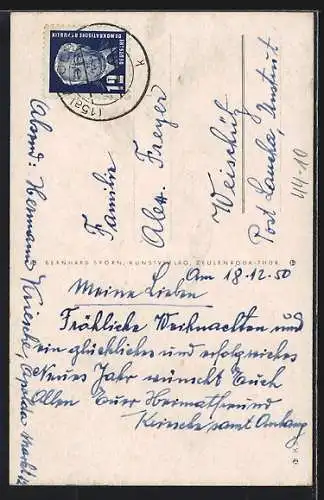 DEUTSCHE
DEMOKRATISCHE REPUBLIK
12
(15a)
k
Familie
Alex. Freyer
Weischütz
Post Laucha, Unstrut
44-10
Absend: Hermann Kriesche, Apolda Markt 12
BERNHARD SPÖRN, KUNSTVERLAG, ZEULENRODA-THÜR.
Am 18.12.50
Meine Lieben
Fröhliche Weihnachten und
ein glückliches und erfolgreiches
Neues Jahr wünscht Euch
Allen Euer Heimatfreund
Kriesche samt Anhang